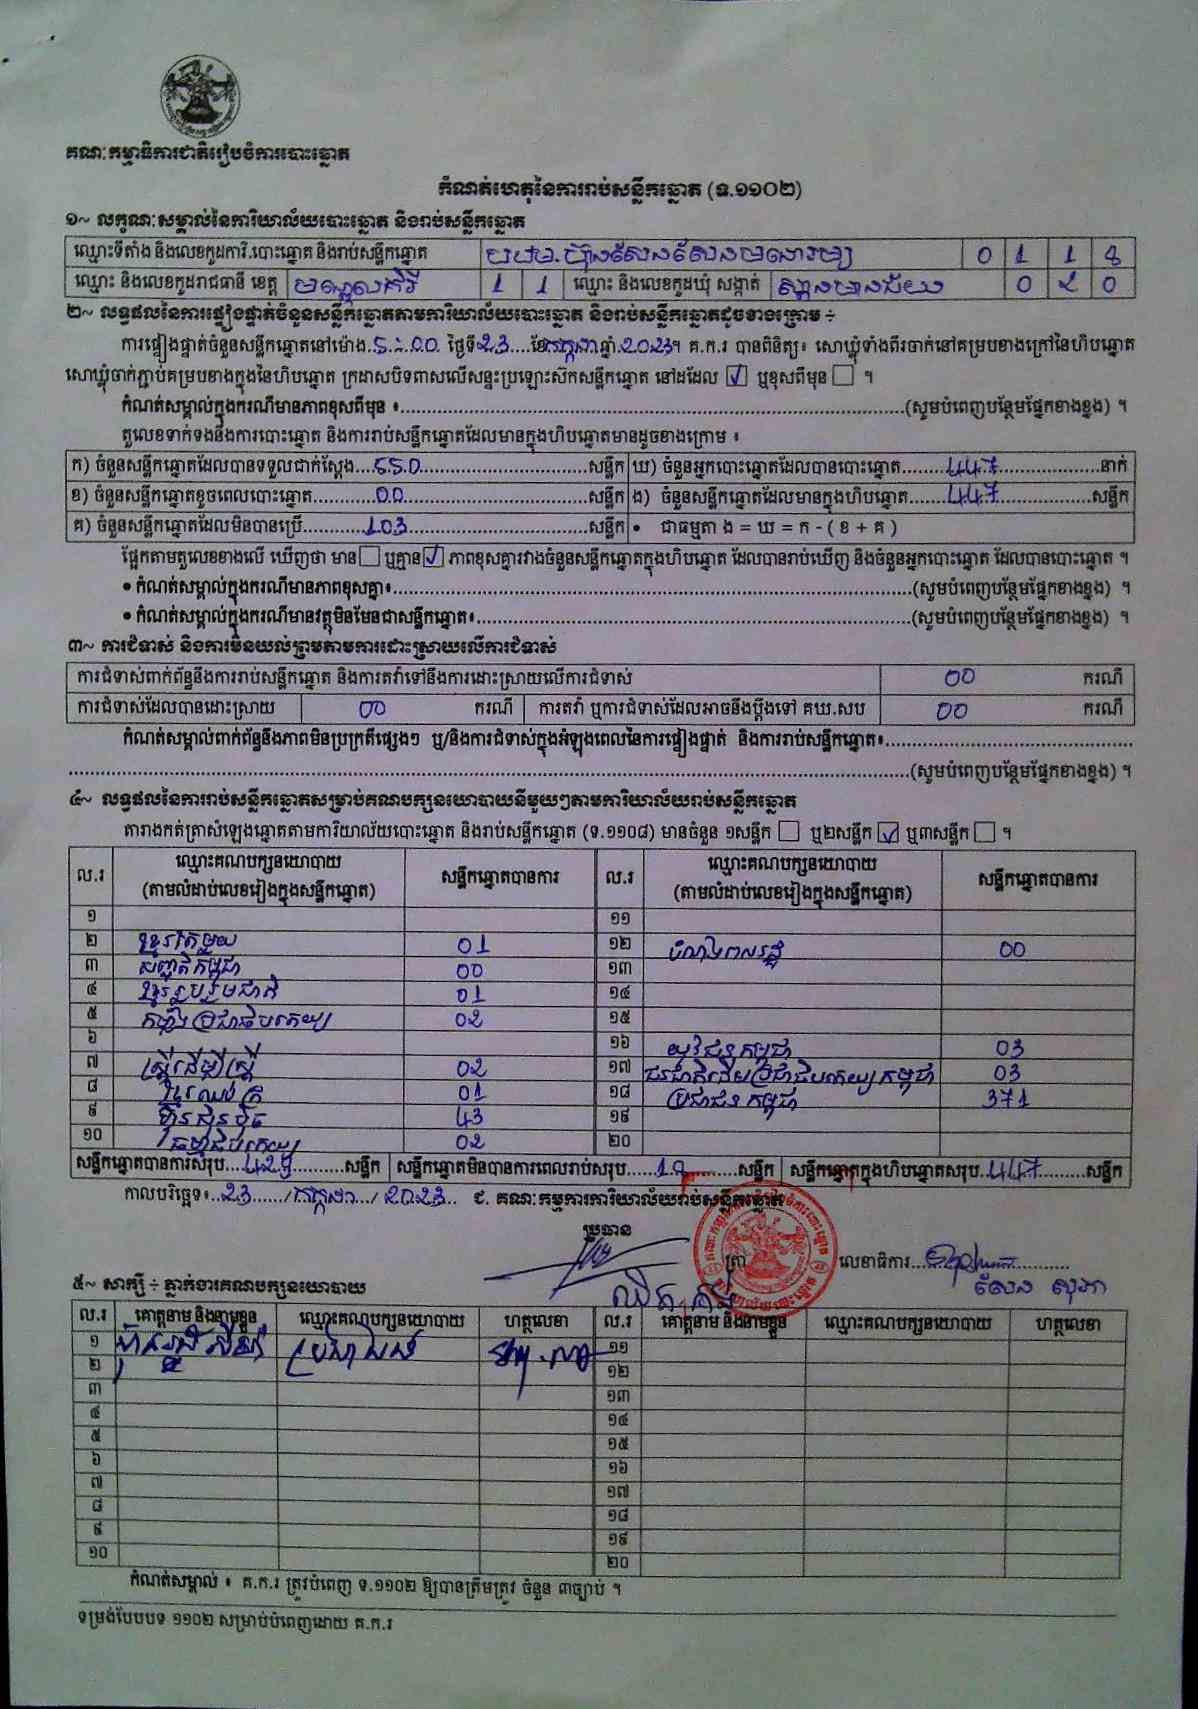 គណៈកម្មាធិការជាតិរៀបចំការបោះឆ្នោត
កំណត់ហេតុនៃការរាប់សន្លឹកឆ្នោត (ទ.១១០២)
១~ លក្ខណៈសម្គាល់នៃការិយាល័យបោះឆ្នោត និងរាប់សន្លឹកឆ្នោត
ឈ្មោះទីតាំង និងលេខកូដការិ.បោះឆ្នោត និងរាប់សន្លឹកឆ្នោត បឋម.ប៊ុនរ៉ានីហ៊ុនសែនសែនមនោរម្យ 0 1 1 8
ឈ្មោះ និងលេខកូដរាជធានី ខេត្ត មណ្ឌលគិរី 1 1 ឈ្មោះ និងលេខកូដឃុំ សង្កាត់ ស្ពានមានជ័យ 0 2 0
២~ លទ្ធផលនៃការផ្ទៀងផ្ទាត់ចំនួនសន្លឹកឆ្នោតតាមការិយាល័យបោះឆ្នោត និងរាប់សន្លឹកឆ្នោតដូចខាងក្រោម ÷
ការផ្ទៀងផ្ទាត់ចំនួនសន្លឹកឆ្នោតនៅម៉ោង..5:00 ថ្ងៃទី23....ខែកក្កដាឆ្នាំ.2023។ គ.ក.រ បានពិនិត្យ៖ សោឃ្លុំទាំងពីរចាក់នៅគម្របខាងក្រៅនៃហិបឆ្នោត
សោឃ្លុំចាក់ភ្ជាប់គម្របខាងក្នុងនៃហិបឆ្នោត ក្រដាសបិទពាសលើសន្ទះប្រឡោះស៊កសន្លឹកឆ្នោត នៅដដែល ☑ ឬខុសពីមុន ☐ ។
កំណត់សម្គាល់ក្នុងករណីមានភាពខុសពីមុន ៖..........(សូមបំពេញបន្ថែមផ្នែកខាងខ្នង) ។
តួលេខទាក់ទងនឹងការបោះឆ្នោត និងការរាប់សន្លឹកឆ្នោតដែលមានក្នុងហិបឆ្នោតមានដូចខាងក្រោម ៖
ក) ចំនួនសន្លឹកឆ្នោតដែលបានទទួលជាក់ស្តែង...550..........សន្លឹក ឃ) ចំនួនអ្នកបោះឆ្នោតដែលបានបោះឆ្នោត........447..........នាក់
ខ) ចំនួនសន្លឹកឆ្នោតខូចពេលបោះឆ្នោត..........00..........សន្លឹក ង) ចំនួនសន្លឹកឆ្នោតដែលមានក្នុងហិបឆ្នោត.......447..........សន្លឹក
គ) ចំនួនសន្លឹកឆ្នោតដែលមិនបានប្រើ..........103..........សន្លឹក • ជាធម្មតា ង = ឃ = ក - ( ខ + គ )
ផ្អែកតាមតួលេខខាងលើ ឃើញថា មាន ☐ ឬគ្មាន ☑ ភាពខុសគ្នារវាងចំនួនសន្លឹកឆ្នោតក្នុងហិបឆ្នោត ដែលបានរាប់ឃើញ និងចំនួនអ្នកបោះឆ្នោត ដែលបានបោះឆ្នោត ។
• កំណត់សម្គាល់ក្នុងករណីមានភាពខុសគ្នា៖..........(សូមបំពេញបន្ថែមផ្នែកខាងខ្នង) ។
• កំណត់សម្គាល់ក្នុងករណីមានវត្ថុមិនមែនជាសន្លឹកឆ្នោត៖..........(សូមបំពេញបន្ថែមផ្នែកខាងខ្នង) ។
៣~ ការជំទាស់ និងការមិនយល់ព្រមតាមការដោះស្រាយលើការជំទាស់
ការជំទាស់ពាក់ព័ន្ធនឹងការរាប់សន្លឹកឆ្នោត និងការតវ៉ាទៅនឹងការដោះស្រាយលើការជំទាស់ 00 ករណី
ការជំទាស់ដែលបានដោះស្រាយ 00 ករណី ការតវ៉ា ឬការជំទាស់ដែលអាចនឹងប្តឹងទៅ គឃ.សប 00 ករណី
កំណត់សម្គាល់ពាក់ព័ន្ធនឹងភាពមិនប្រក្រតីផ្សេងៗ ឬ/និងការជំទាស់ក្នុងអំឡុងពេលនៃការផ្ទៀងផ្ទាត់ និងការរាប់សន្លឹកឆ្នោត៖..........
..........(សូមបំពេញបន្ថែមផ្នែកខាងខ្នង) ។
៤~ លទ្ធផលនៃការរាប់សន្លឹកឆ្នោតសម្រាប់គណបក្សនយោបាយនីមួយៗតាមការិយាល័យរាប់សន្លឹកឆ្នោត
តារាងកត់ត្រាសំឡេងឆ្នោតតាមការិយាល័យបោះឆ្នោត និងរាប់សន្លឹកឆ្នោត (ទ.១១០៨) មានចំនួន ១សន្លឹក ☐ ឬ២សន្លឹក ☑ ឬ៣សន្លឹក ☐ ។
ល.រ ឈ្មោះគណបក្សនយោបាយ (តាមលំដាប់លេខរៀងក្នុងសន្លឹកឆ្នោត) សន្លឹកឆ្នោតបានការ ល.រ ឈ្មោះគណបក្សនយោបាយ (តាមលំដាប់លេខរៀងក្នុងសន្លឹកឆ្នោត) សន្លឹកឆ្នោតបានការ
១ ១១
២ ខ្មែរតែមួយ 01 ១២ បំណងពលរដ្ឋ 00
៣ សញ្ជាតិកម្ពុជា 00 ១៣
៤ ខ្មែររួបរួមជាតិ 01 ១៤
៥ កម្លាំងប្រជាធិបតេយ្យ 02 ១៥
៦ ១៦ យុវជនកម្ពុជា 03
៧ ស្ត្រីដើម្បីស្ត្រី 02 ១៧ ជនជាតិដើមប្រជាធិបតេយ្យកម្ពុជា 03
៨ ខ្មែរឈប់ក្រ 01 ១៨ ប្រជាជនកម្ពុជា 371
៩ ហ៊្វុនស៊ិនប៉ិច 43 ១៩
១០ ធម្មាធិបតេយ្យ 02 ២០
សន្លឹកឆ្នោតបានការសរុប....429..........សន្លឹក សន្លឹកឆ្នោតមិនបានការពេលរាប់សរុប....18..........សន្លឹក សន្លឹកឆ្នោតក្នុងហិបឆ្នោតសរុប..447..........សន្លឹក
កាលបរិច្ឆេទ៖..23....../កក្កដា.../2023.. ជ. គណៈកម្មការការិយាល័យរាប់សន្លឹកឆ្នោត
ប្រធាន
ត្រា លេខាធិការ..........
សែន សុភា
៥~ សាក្សី ÷ ភ្នាក់ងារគណបក្សនយោបាយ
ល.រ គោត្តនាម និងនាមខ្លួន ឈ្មោះគណបក្សនយោបាយ ហត្ថលេខា ល.រ គោត្តនាម និងនាមខ្លួន ឈ្មោះគណបក្សនយោបាយ ហត្ថលេខា
១ ប្រជាជន ១១
២ ១២
៣ ១៣
៤ ១៤
៥ ១៥
៦ ១៦
៧ ១៧
៨ ១៨
៩ ១៩
១០ ២០
កំណត់សម្គាល់ ៖ គ.ក.រ ត្រូវបំពេញ ទ.១១០២ ឱ្យបានត្រឹមត្រូវ ចំនួន ៣ច្បាប់ ។
ទម្រង់បែបបទ ១១០២ សម្រាប់បំពេញដោយ គ.ក.រ